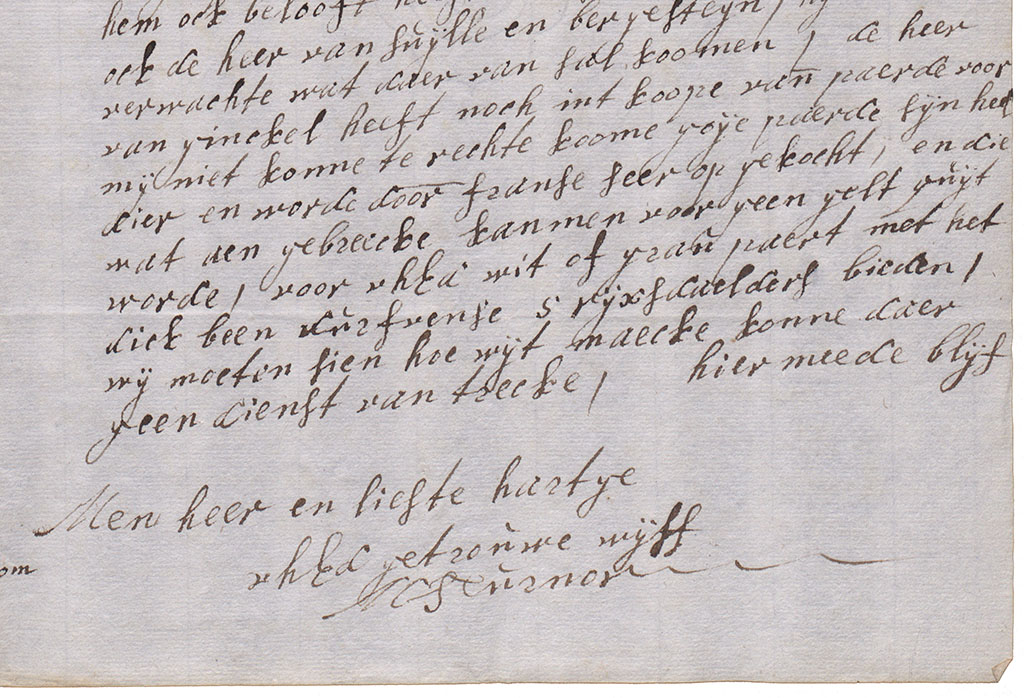 hem ock belooft
ock de heer van suÿlle en bergesteÿn,
verwachte wat daer van sal koomen, de heer
van ginckel heeft noch int koope van paerde voor
mÿ niet konne te rechte koome goÿe paerde sÿn heel
dier en worde door franse seer op gekocht, en die
wat aen gebreecke kanmen voor geen gelt quÿt
worde, voor uhEd wit of graŭ paert met het
dick been dŭrfvense 5 rÿxsdaelders bieden,
wÿ moeten sien hoe wÿt maecke konne daer
geen dienst van trecke, hier meede blÿf
Men heer en liefste hartge
uhEd getroŭwe wÿff
om